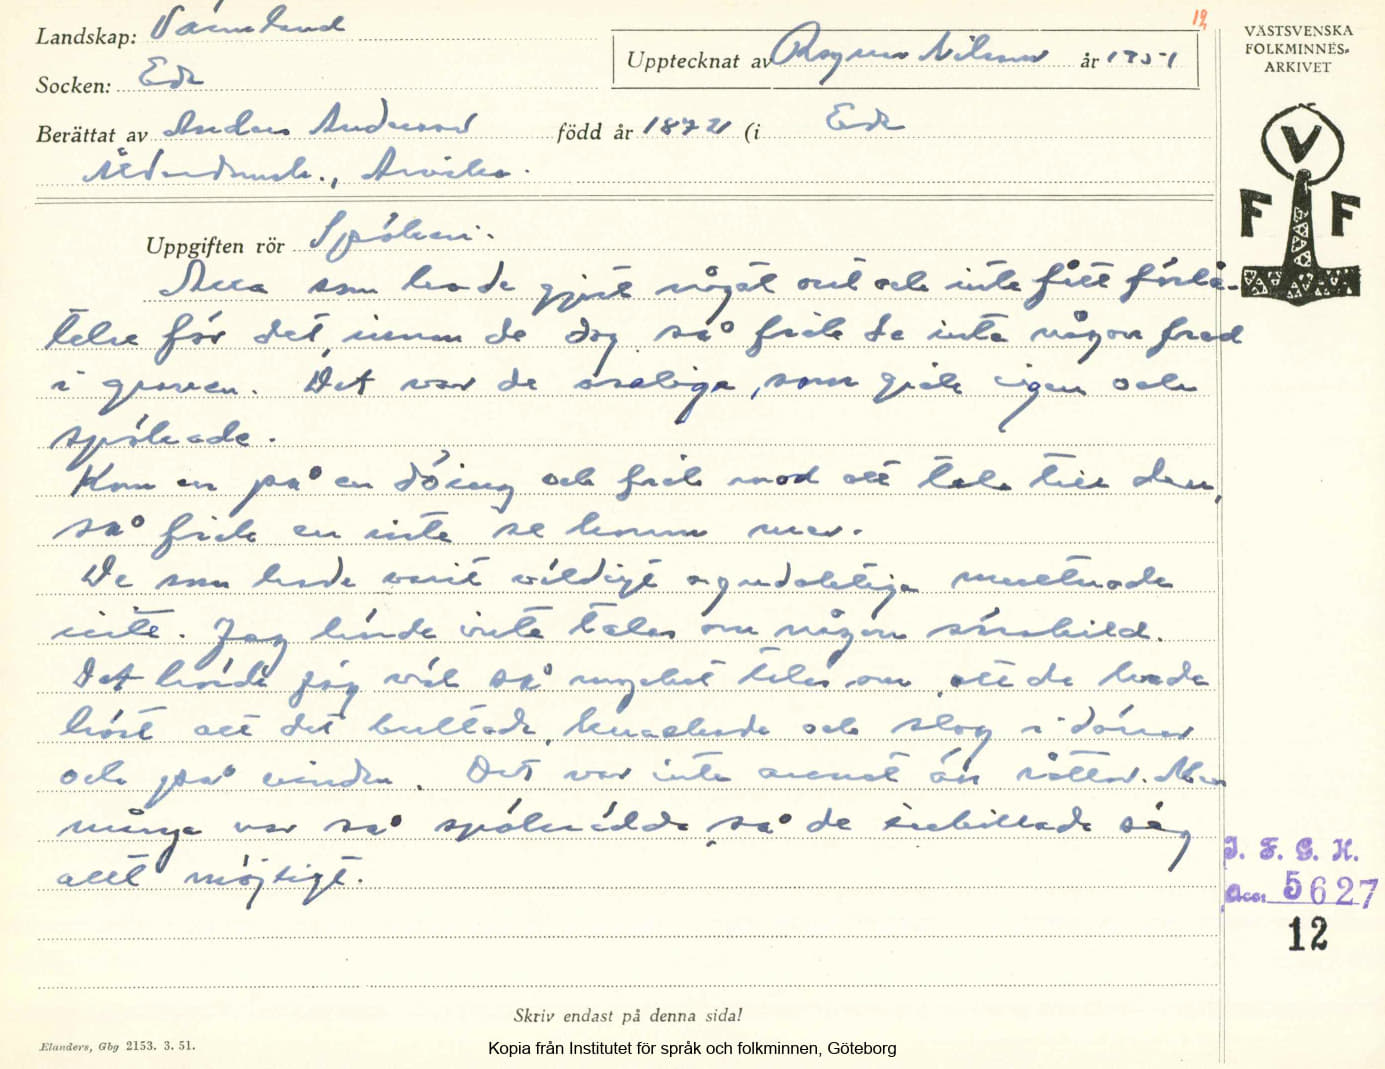 12
Landskap: Värmland
Upptecknat av Ragnar Nilsson år 1951
Socken: Eda
Berättat av Anders Andersson född år 1872 (i Eda
Ålderdomsh., Arvika.
VÄSTSVENSKA
FOLKMINNES-
ARKIVET
V
F F
Uppgiften rör Spökeri.
Alla som hade gjort något ont och inte fått förlå-
telse för det innan de dog så fick de inte någon fred
i graven. Det var de osaliga, som gick igen och
spökade.
Kom en på en döing och fick mod att tala till den,
så fick en inte se honom mer.
De som hade varit väldigt ogudaktiga multnade
inte. Jag hörde inte talas om någon särskild.
Det hörde jag väl så mycket talas om, att de hade
hört att det bultade, knackade och slog i dörrar
och på vinden. Det var inte annat än råttor. Men
många var så spökrädda, så de inbillade sig
allt möjligt.
I. F. G. H.
Acc: 5627
12
Skriv endast på denna sida!
Elanders, Gbg 2153. 3. 51.
Kopia från Institutet för språk och folkminnen, Göteborg